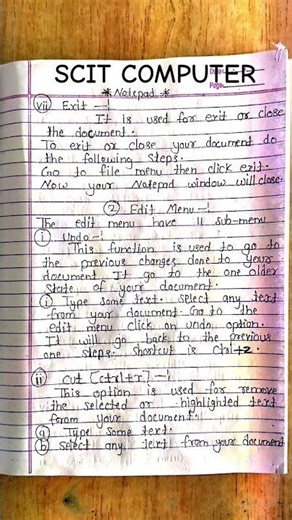 SCIT COMPUTER
Page
*Notepad*
(vii) Exit -:
It is used for exit or close
the document.
To exit or close your document do
the following steps.
Go to file menu then click exit.
Now your Notepad window will close.
(2) Edit Menu -:
The edit menu have 11 sub-menu
(i) Undo -:
This function is used to go to
the previous changes done to your
document. It go to the one older
state of your document.
(i) Type some text. select any text
from your document. Go to the
edit menu click on undo option.
It will go back to the previous
one steps. Shortcut is Ctrl+z.
(ii) cut [ctrl+x] -:
This option is used for remove
the selected or highlighted text
from your document.
(a) Type some text.
(b) select any text from your document